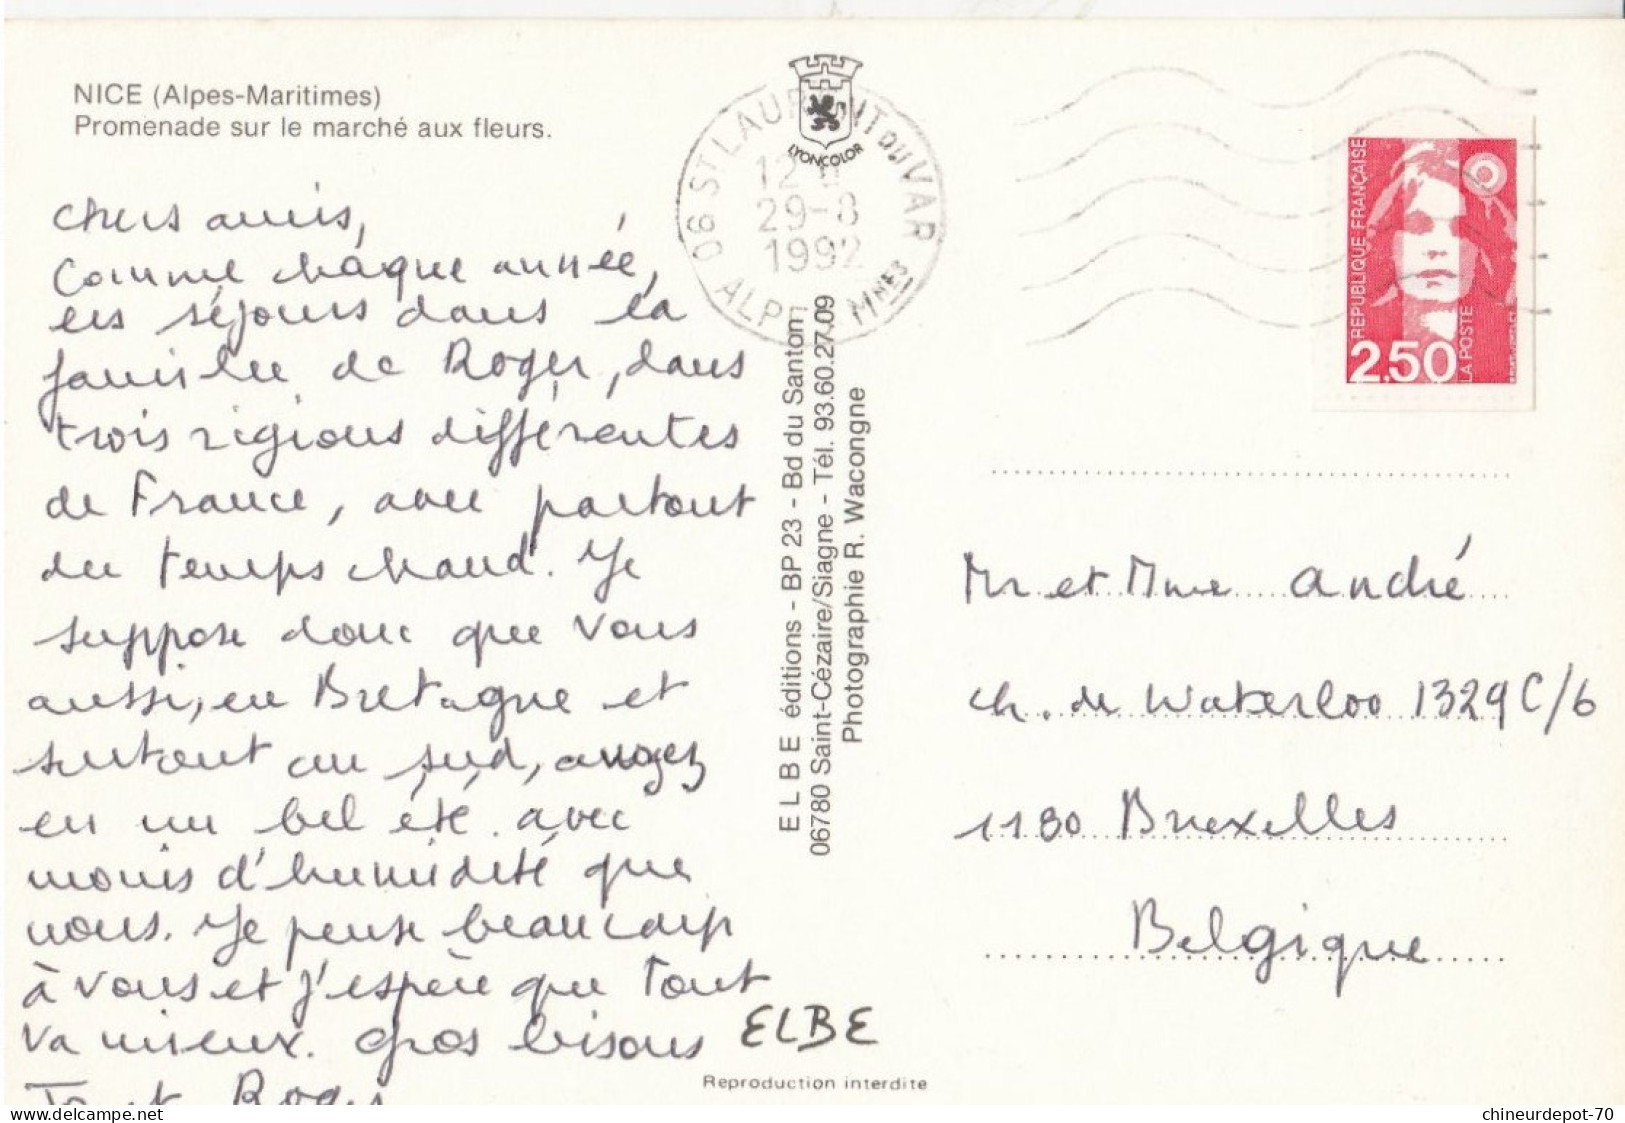 NICE (Alpes-Maritimes)
Promenade sur le marché aux fleurs.
Chers amis,
Comme chaque année,
les séjours dans la
famille de Roger, dans
trois régions différentes
de France, avec partout
du temps chaud. Je
suppose donc que vous
aussi, en Bretagne et
surtout au sud,
en un bel été avec
moins d'humidité que
nous. Je pense beaucoup
à vous et j'espère que tout
va mieux. Gros bisous
Roger
LYONCOLOR
06 ST LAURENT du VAR
12
29-8
1992
ALP MMES
E L B E éditions - BP 23 - Bd du Santon
06780 Saint-Cézaire/Siagne - Tél. 93.60.27.09
Photographie R. Wacongne
ELBE
Reproduction interdite
REPUBLIQUE FRANÇAISE
2,50
LA POSTE
Mr et Mme André
ch. de Waterloo 1329 C/6
1180 Bruxelles
Belgique
www.delcampe.net
chineurdepot-70